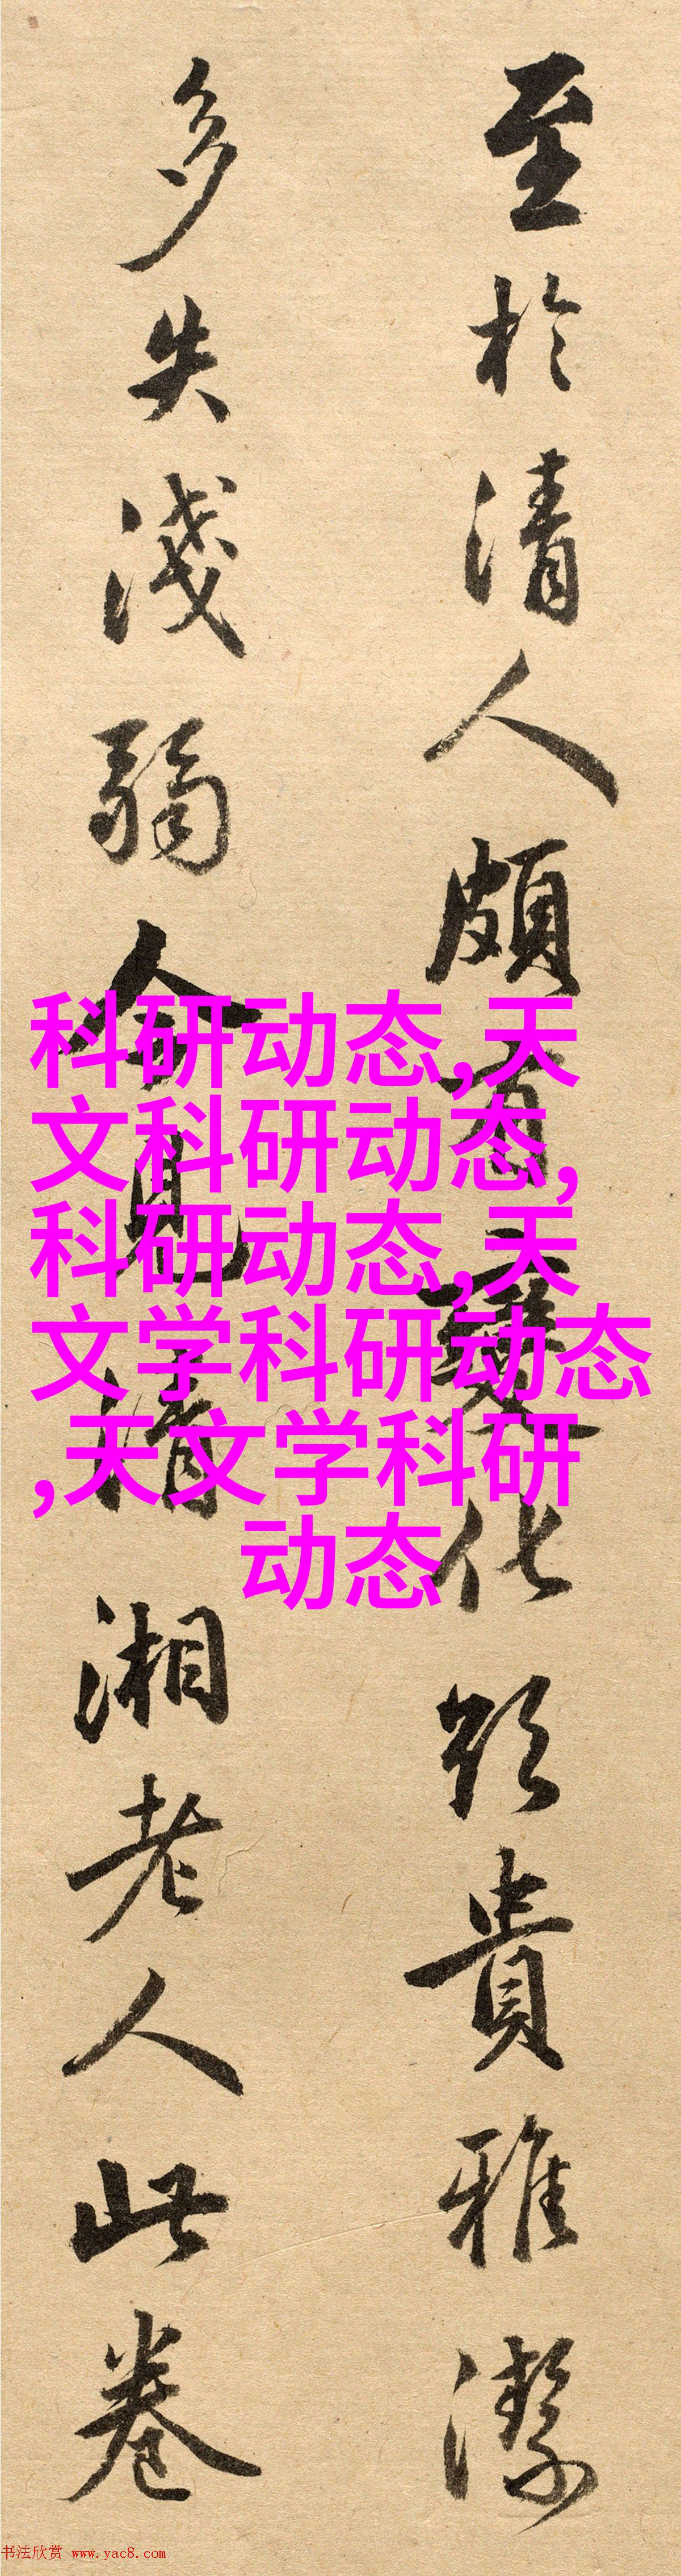 至於清人頗有變化然貴雅潔
多失淺弱今見清湘老人此卷
科研动态,天
文科研动态,
科研动态,天
文学科研动态
,天文学科研
动态
书法欣赏 www.yac8.com